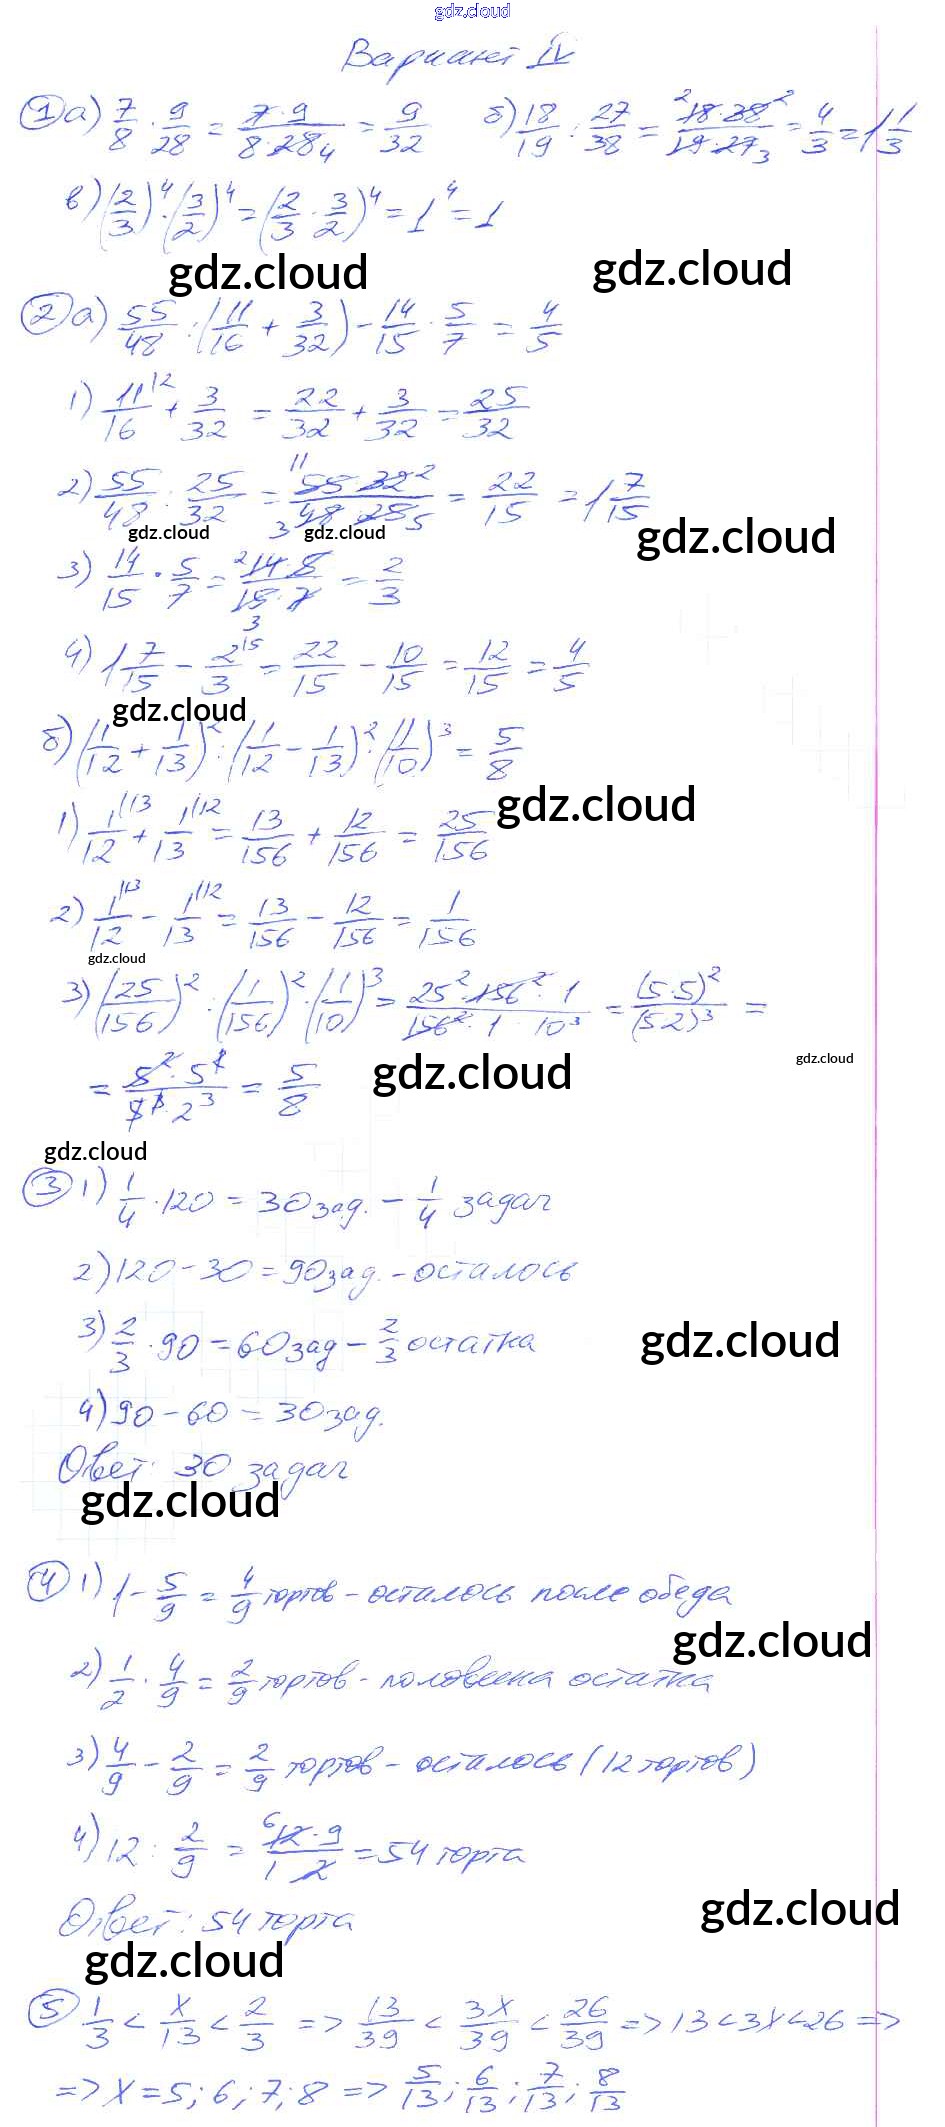 gdz.cloud
Вариант IV
① а) 7/8 · 9/28 = 7·9/8·28 4 = 9/32 б) 18/19 : 27/38 = 2 18·38 2/19·27 3 = 4/3 = 1 1/3
в) (2/3)^4 · (3/2)^4 = (2/3 · 3/2)^4 = 1^4 = 1
gdz.cloud gdz.cloud
② а) 55/48 : (11/16 + 3/32) - 14/15 · 5/7 = 4/5
1) 11/16 |2 + 3/32 = 22/32 + 3/32 = 25/32
2) 55/48 : 25/32 = 11 55·32 2/3 48·25 5 = 22/15 = 1 7/15
gdz.cloud gdz.cloud gdz.cloud
3) 14/15 · 5/7 = 2 14·5/15·7 3 = 2/3
4) 1 7/15 - 2/3 |5 = 22/15 - 10/15 = 12/15 = 4/5
gdz.cloud
б) (1/12 + 1/13)^2 : (1/12 - 1/13)^2 · (1/10)^3 = 5/8
gdz.cloud
1) 1/12 |13 + 1/13 |12 = 13/156 + 12/156 = 25/156
2) 1/12 |13 - 1/13 |12 = 13/156 - 12/156 = 1/156
gdz.cloud
3) (25/156)^2 : (1/156)^2 · (1/10)^3 = 25^2·156^2·1/156^2·1·10^3 = (5·5)^2/(5·2)^3 =
gdz.cloud gdz.cloud
= 5^2·5^2/5^3·2^3 = 5/8
gdz.cloud
③ 1) 1/4 · 120 = 30 зад. - 1/4 задач
2) 120 - 30 = 90 зад. - осталось
3) 2/3 · 90 = 60 зад - 2/3 остатка
gdz.cloud
4) 90 - 60 = 30 зад.
Ответ: 30 задач
gdz.cloud
④ 1) 1 - 5/9 = 4/9 тортов - осталось после обеда
gdz.cloud
2) 1/2 · 4/9 = 2/9 тортов - половина остатка
3) 4/9 - 2/9 = 2/9 тортов - осталось (12 тортов)
4) 12 : 2/9 = 6 12·9/1·2 = 54 торта
Ответ: 54 торта
gdz.cloud
gdz.cloud
⑤ 1/3 < x/13 < 2/3 => 13/39 < 3x/39 < 26/39 => 13 < 3x < 26 =>
=> x = 5; 6; 7; 8 => 5/13; 6/13; 7/13; 8/13